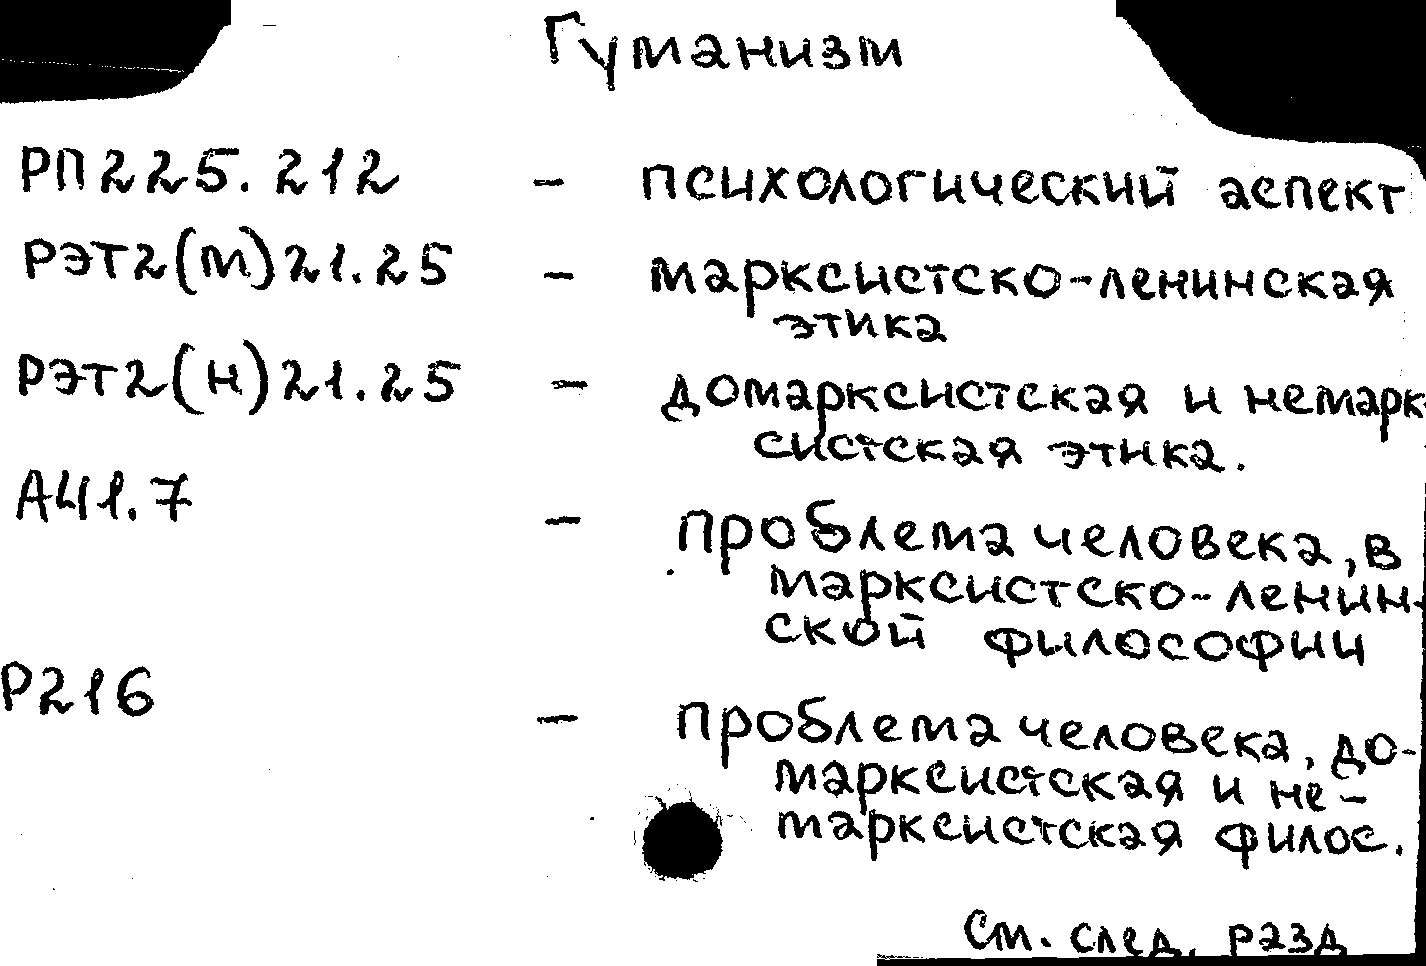 Гуманизм
РП225.212 – психологический аспект
РЭТ2(М)21.25 – марксистско-ленинская
этика
РЭТ2(Н)21.25 – домарксистская и немарк-
систская этика.
А41.7 – проблема человека, в
марксистско-ленин-
ской философии
Р216 – проблема человека, до-
марксистская и не-
марксистская филос.
См. след. разд